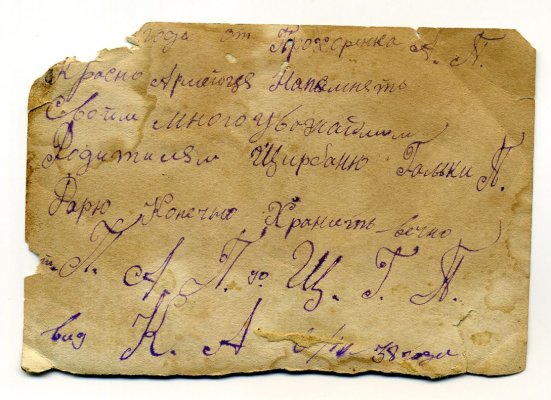 года от Прохоренка А. П.
Красно Армейця Напомнять
Своїм многоуважаемим
Родителям Щирбаню Гальки П.
Дарю Конечно Хранить вечно
П. А. П. до Щ. Г. П.
вид К. А 38 года